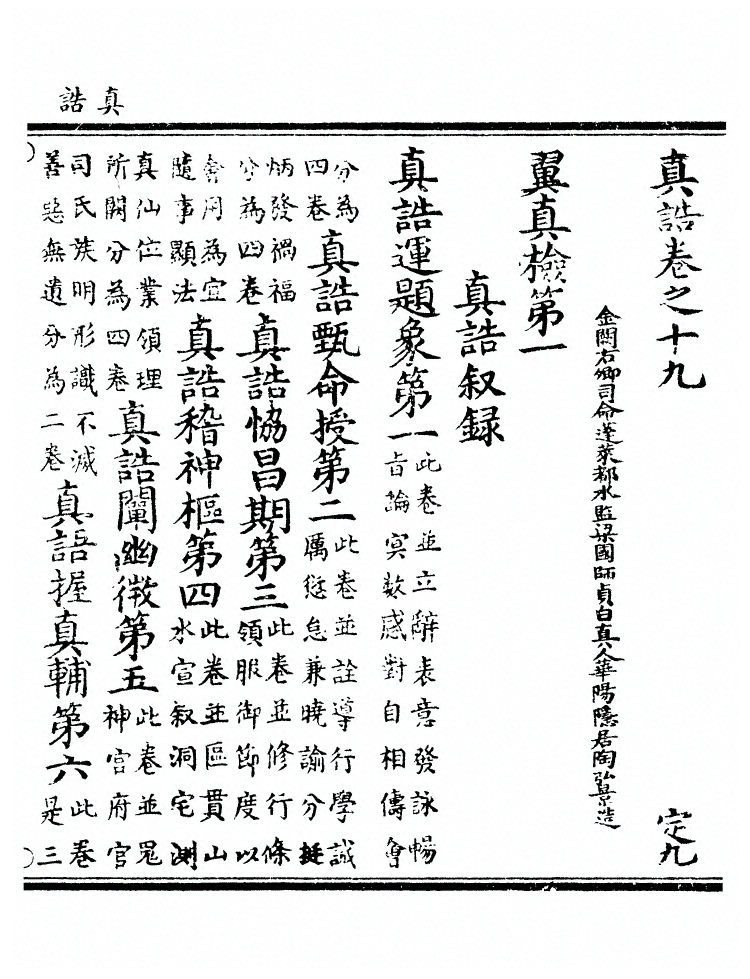 真誥
真誥卷之十九 定九
金闕右卿司命蓬萊都水監梁國師貞白真人華陽隱居陶弘景造
翼真檢第一
真誥叙録
真誥運題象第一 此卷並立辭表意發詠暢旨論冥数感對自相儔會
分為四卷 真誥甄命授第二 此卷並詮導行學誡厲愆怠兼曉諭分挺
炳發禍福分為四卷 真誥恊昌期第三 此卷並修行條領服御節度以
會用為宜隨事顯法 真誥稽神樞第四 此卷並區貫山水宣叙洞宅測
真仙位業領理所闕分為四卷 真誥闡幽微第五 此卷並鬼神宫府官
司氏族明形識不滅善惡無遺分為二卷 真誥握真輔第六 此卷是三